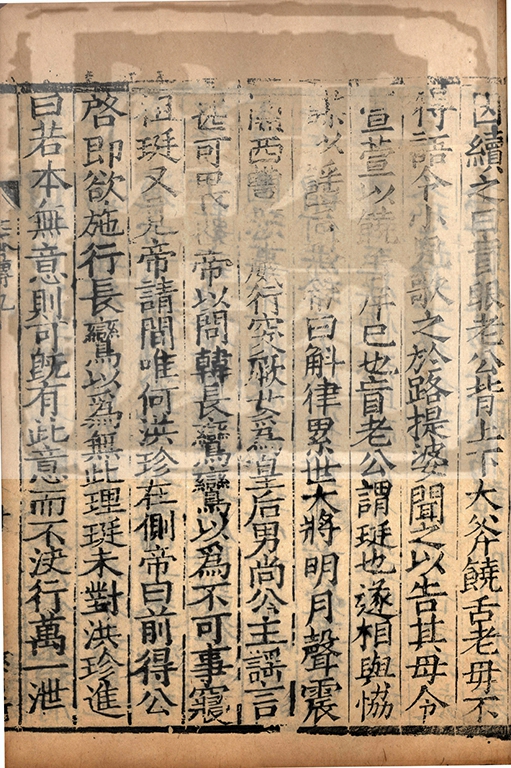 因續之曰盲眼老公背上下大斧饒舌老母不
得語令小兒歌之於路提婆聞之以告其母令
萱以饒舌斥已也盲老公謂珽也遂相與恊
謀以謡言啓帝曰斛律累世大將明月聲震
關西豐樂威行突厥女爲皇后男尚公主謡言
甚可畏帝以問韓長鸞鸞以爲不可事寢
祖珽又見帝請間唯何洪珍在側帝曰前得公
啓即欲施行長鸞以爲無此理珽未對洪珍進
曰若本無意則可旣有此意而不决行萬一泄